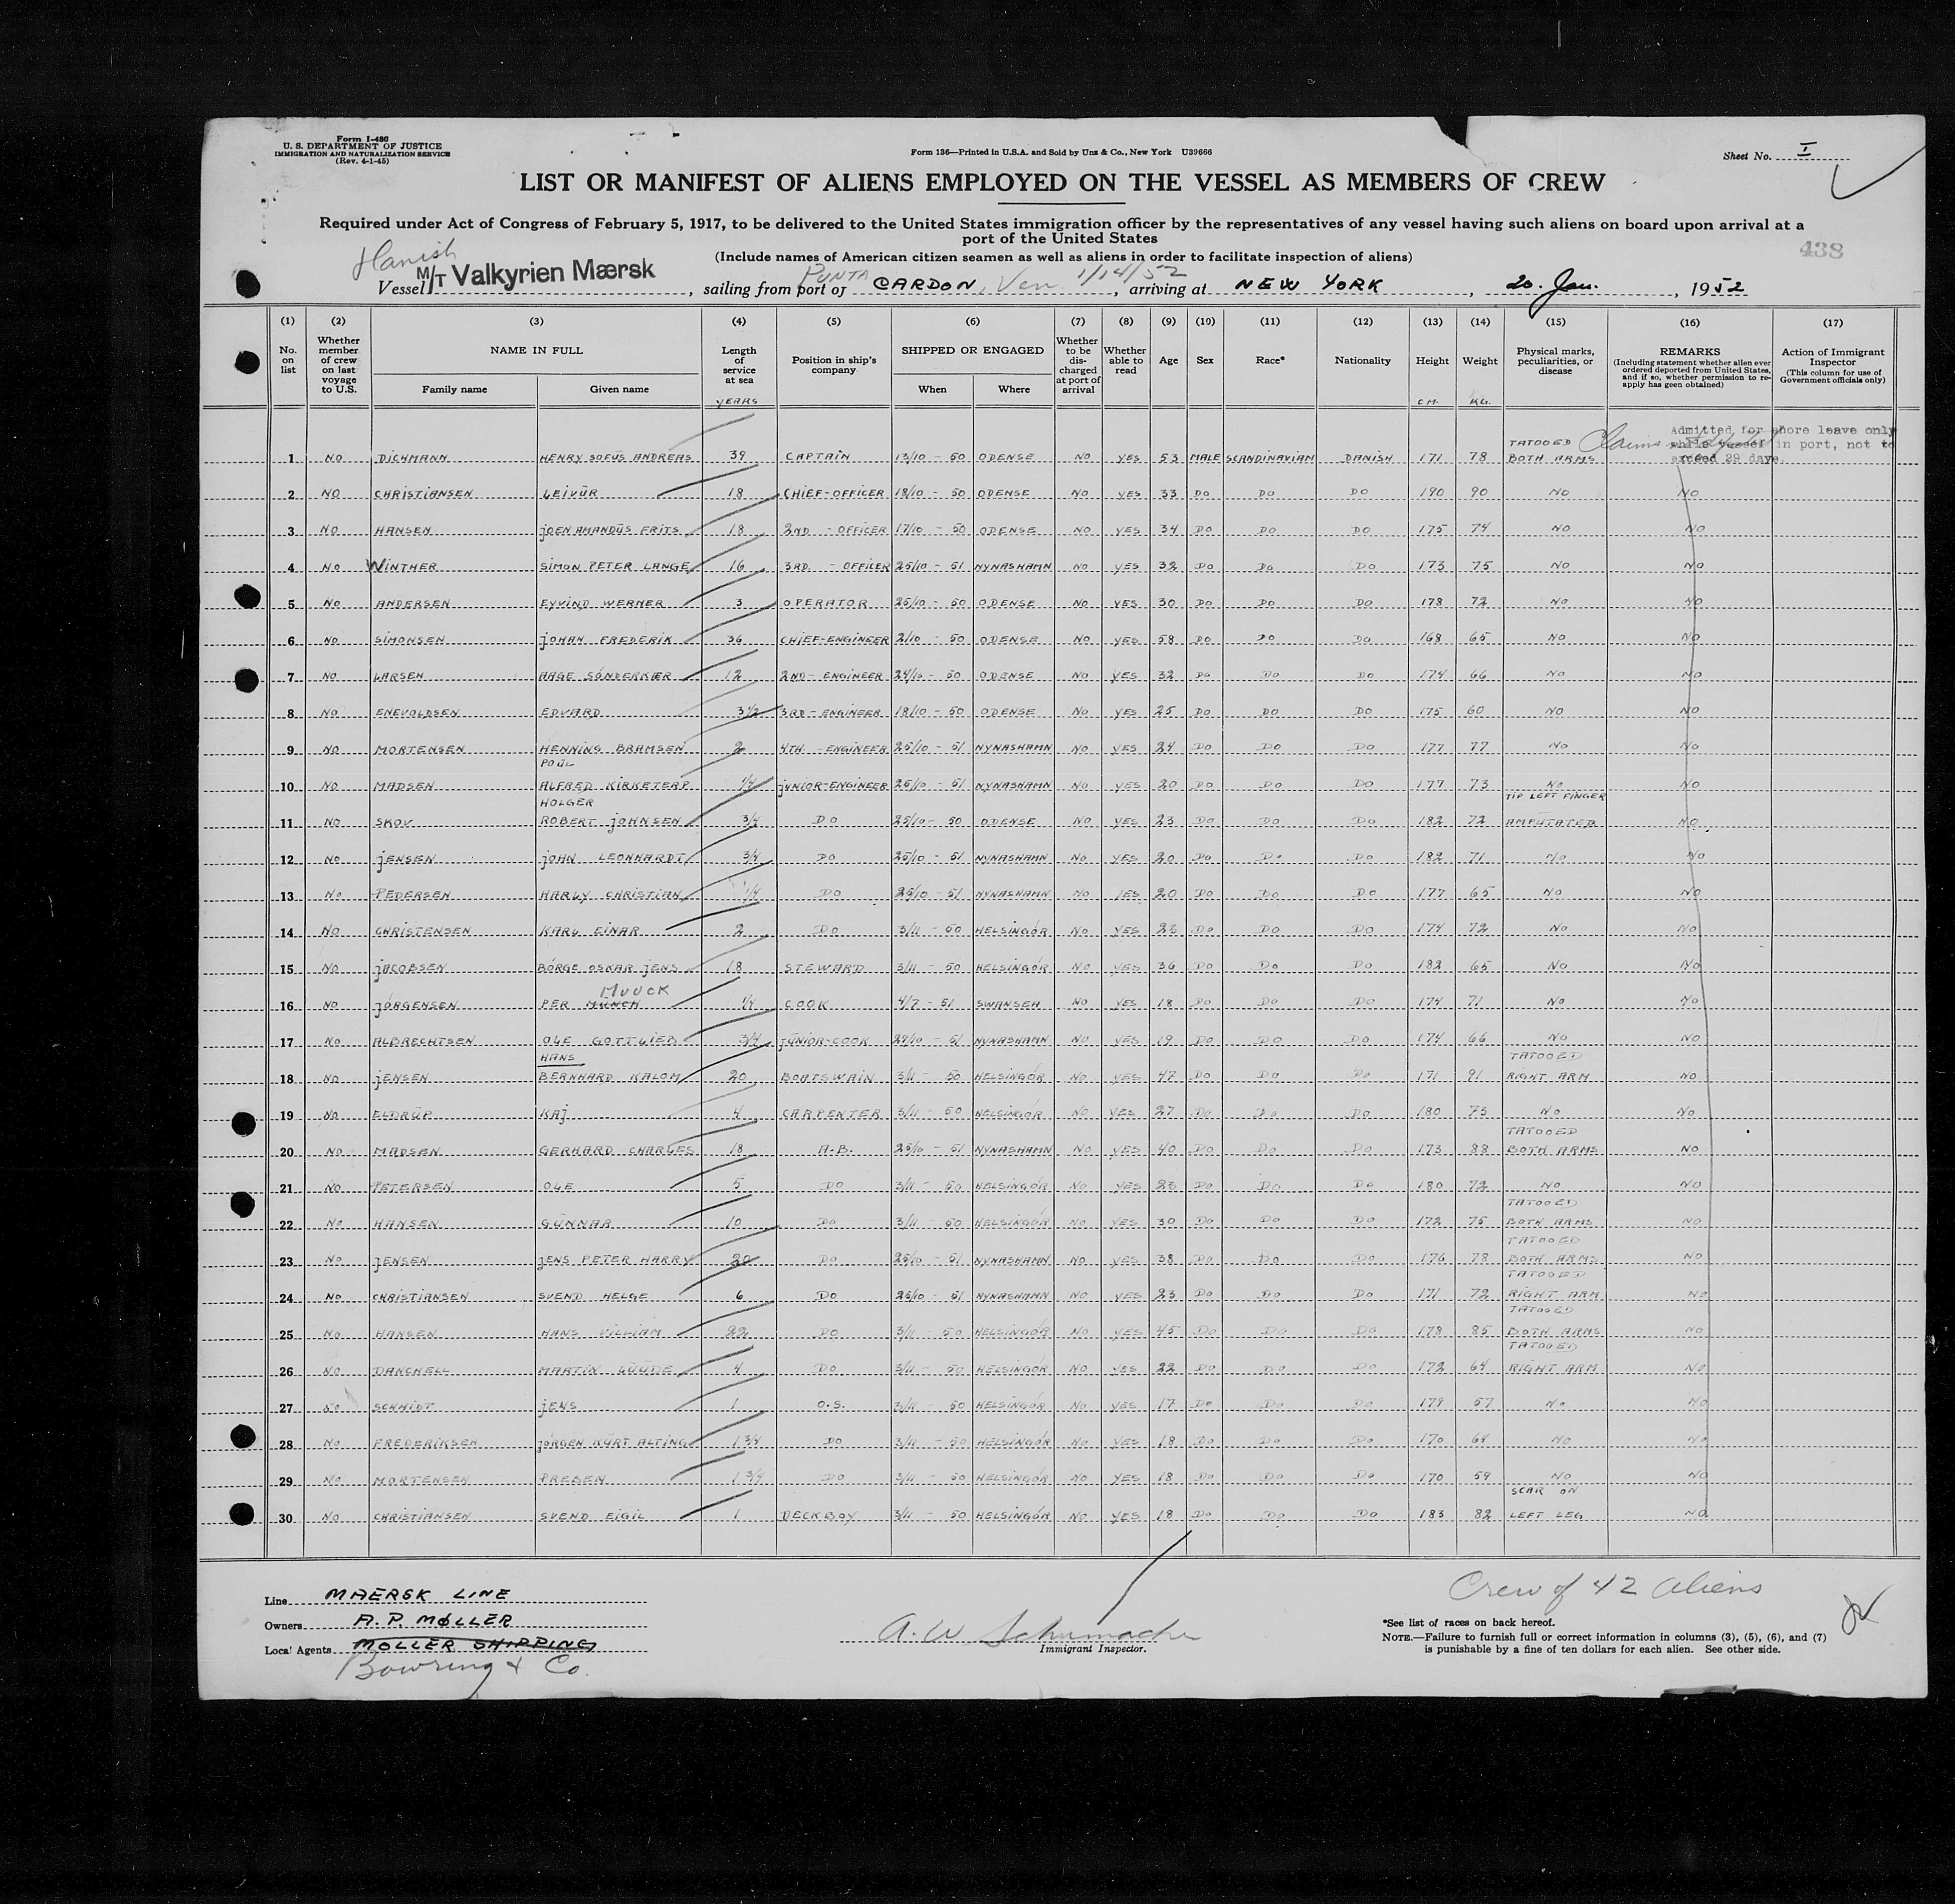 Form I-480
U. S. DEPARTMENT OF JUSTICE
IMMIGRATION AND NATURALIZATION SERVICE
(Rev. 4-1-45)
Form 136—Printed in U.S.A. and Sold by Unz & Co., New York U39666
Sheet No. I
LIST OR MANIFEST OF ALIENS EMPLOYED ON THE VESSEL AS MEMBERS OF CREW
Required under Act of Congress of February 5, 1917, to be delivered to the United States immigration officer by the representatives of any vessel having such aliens on board upon arrival at a
port of the United States
438
(Include names of American citizen seamen as well as aliens in order to facilitate inspection of aliens)
Vessel M/T Valkyrien Mærsk, sailing from port of PUNTA CARDON, Ven. 1/14/52, arriving at NEW YORK, 20. Jan., 1952
(1) (2) (3) (4) (5) (6) (7) (8) (9) (10) (11) (12) (13) (14) (15) (16) (17)
No. on list
Whether member of crew on last voyage to U.S.
NAME IN FULL
Family name Given name
Length of service at sea
YEARS
Position in ship's company
SHIPPED OR ENGAGED
When Where
Whether to be discharged at port of arrival
Whether able to read
Age Sex Race* Nationality Height Weight
CM. KG.
Physical marks, peculiarities, or disease
REMARKS
(Including statement whether alien ever ordered deported from United States, and if so, whether permission to reapply has geen obtained)
Action of Immigrant Inspector
(This column for use of Government officials only)
Admitted for shore leave only
while vessel in port, not to
exceed 29 days.
1 NO DICHMANN HENRY SOFUS ANDREAS 39 CAPTAIN 13/10 - 50 ODENSE NO YES 53 MALE SCANDINAVIAN DANISH 171 78 TATOOED BOTH ARMS
2 NO CHRISTIANSEN LEIVUR 18 CHIEF-OFFICER 18/10 - 50 ODENSE NO YES 33 DO DO DO 190 90 NO NO
3 NO HANSEN JOEN AMANDUS FRITS 18 2ND - OFFICER 17/10 - 50 ODENSE NO YES 34 DO DO DO 175 74 NO NO
4 NO WINTHER SIMON PETER LANGE 16 3RD. - OFFICER 25/10 - 51 NYNASHAMN NO YES 32 DO DO DO 173 75 NO NO
5 NO ANDERSEN EYVIND WERNER 3 OPERATOR 25/10 - 50 ODENSE NO YES 30 DO DO DO 178 72 NO NO
6 NO SIMONSEN JOHAN FREDERIK 36 CHIEF-ENGINEER 2/10 - 50 ODENSE NO YES 58 DO DO DO 168 65 NO NO
7 NO LARSEN AAGE SÓNDERKÆR 12 2ND - ENGINEER 24/10 - 50 ODENSE NO YES 32 DO DO DO 174 66 NO NO
8 NO ENEVOLDSEN EDVARD 3 1/2 3RD - ENGINEER 18/10 - 50 ODENSE NO YES 25 DO DO DO 175 60 NO NO
9 NO MORTENSEN HENNING BRAMSEN 2 4TH - ENGINEER 25/10 - 51 NYNASHAMN NO YES 24 DO DO DO 177 77 NO NO
10 NO MADSEN POUL ALFRED KIRKETERP 1/4 JUNIOR-ENGINEER 25/10 - 51 NYNASHAMN NO YES 20 DO DO DO 177 73 NO NO
11 NO SKOV HOLGER ROBERT JOHNSEN 3/4 DO 25/10 - 50 ODENSE NO YES 23 DO DO DO 182 72 TIP LEFT FINGER AMPUTATED NO
12 NO JENSEN JOHN LEONHARDT 3/4 DO 25/10 - 51 NYNASHAMN NO YES 20 DO DO DO 182 71 NO NO
13 NO PEDERSEN HARLY CHRISTIAN 1/4 DO 25/10 - 51 NYNASHAMN NO YES 20 DO DO DO 177 65 NO NO
14 NO CHRISTENSEN KARL EINAR 2 DO 3/11 - 50 HELSINGÓR NO YES 23 DO DO DO 174 72 NO NO
15 NO JACOBSEN BÓRGE OSKAR JENS 18 STEWARD 3/11 - 50 HELSINGÓR NO YES 36 DO DO DO 182 65 NO NO
16 NO JÓRGENSEN PER MUNCH MUUCK 1/4 COOK 4/7 - 51 SWANSEA NO YES 18 DO DO DO 174 71 NO NO
17 NO ALBRECHTSEN OLE GOTTLIEB 3/4 JUNIOR-COOK 29/10 - 51 NYNASHAMN NO YES 19 DO DO DO 174 66 NO NO
18 NO JENSEN HANS BERNHARD KALOM 20 BOATSWAIN 3/11 - 50 HELSINGÓR NO YES 47 DO DO DO 171 91 TATOOED RIGHT ARM NO
19 NO ELDRUP KAJ 4 CARPENTER 3/11 - 50 HELSINGÓR NO YES 27 DO DO DO 180 73 NO NO
20 NO MADSEN GERHARD CHARLES 18 A.B. 25/10 - 51 NYNASHAMN NO YES 40 DO DO DO 173 88 TATOOED BOTH ARMS NO
21 NO PETERSEN OLE 5 DO 3/11 - 50 HELSINGÓR NO YES 23 DO DO DO 180 72 NO NO
22 NO HANSEN GUNNAR 10 DO 3/11 - 50 HELSINGÓR NO YES 30 DO DO DO 172 75 TATOOED BOTH ARMS NO
23 NO JENSEN JENS PETER HARRY 20 DO 25/10 - 51 NYNASHAMN NO YES 38 DO DO DO 176 78 TATOOED BOTH ARMS NO
24 NO CHRISTIANSEN SVEND HELGE 6 DO 25/10 - 51 NYNASHAMN NO YES 23 DO DO DO 171 72 TATOOED RIGHT ARM NO
25 NO HANSEN HANS VILLIAM 22 DO 3/11 - 50 HELSINGÓR NO YES 45 DO DO DO 178 85 TATOOED BOTH ARMS NO
26 NO DANCHELL MARTIN LUUDE 4 DO 3/11 - 50 HELSINGÓR NO YES 22 DO DO DO 172 64 TATOOED RIGHT ARM NO
27 NO SCHMIDT JENS 1 O.S. 3/11 - 50 HELSINGÓR NO YES 17 DO DO DO 179 57 NO NO
28 NO FREDERIKSEN JÓRGEN KURT ALTING 1 3/4 DO 3/11 - 50 HELSINGÓR NO YES 18 DO DO DO 170 64 NO NO
29 NO MORTENSEN PREBEN 1 3/4 DO 3/11 - 50 HELSINGÓR NO YES 18 DO DO DO 170 59 NO NO
30 NO CHRISTIANSEN SVEND EIGIL 1 DECKBOY 3/11 - 50 HELSINGÓR NO YES 18 DO DO DO 183 82 SCAR ON LEFT LEG NO
Line MAERSK LINE
Owners A. P. MØLLER
Local Agents MOLLER SHIPPING
Bowring & Co.
A. W Schumacher
Immigrant Inspector.
Crew of 42 aliens
*See list of races on back hereof.
NOTE.—Failure to furnish full or correct information in columns (3), (5), (6), and (7)
is punishable by a fine of ten dollars for each alien. See other side.